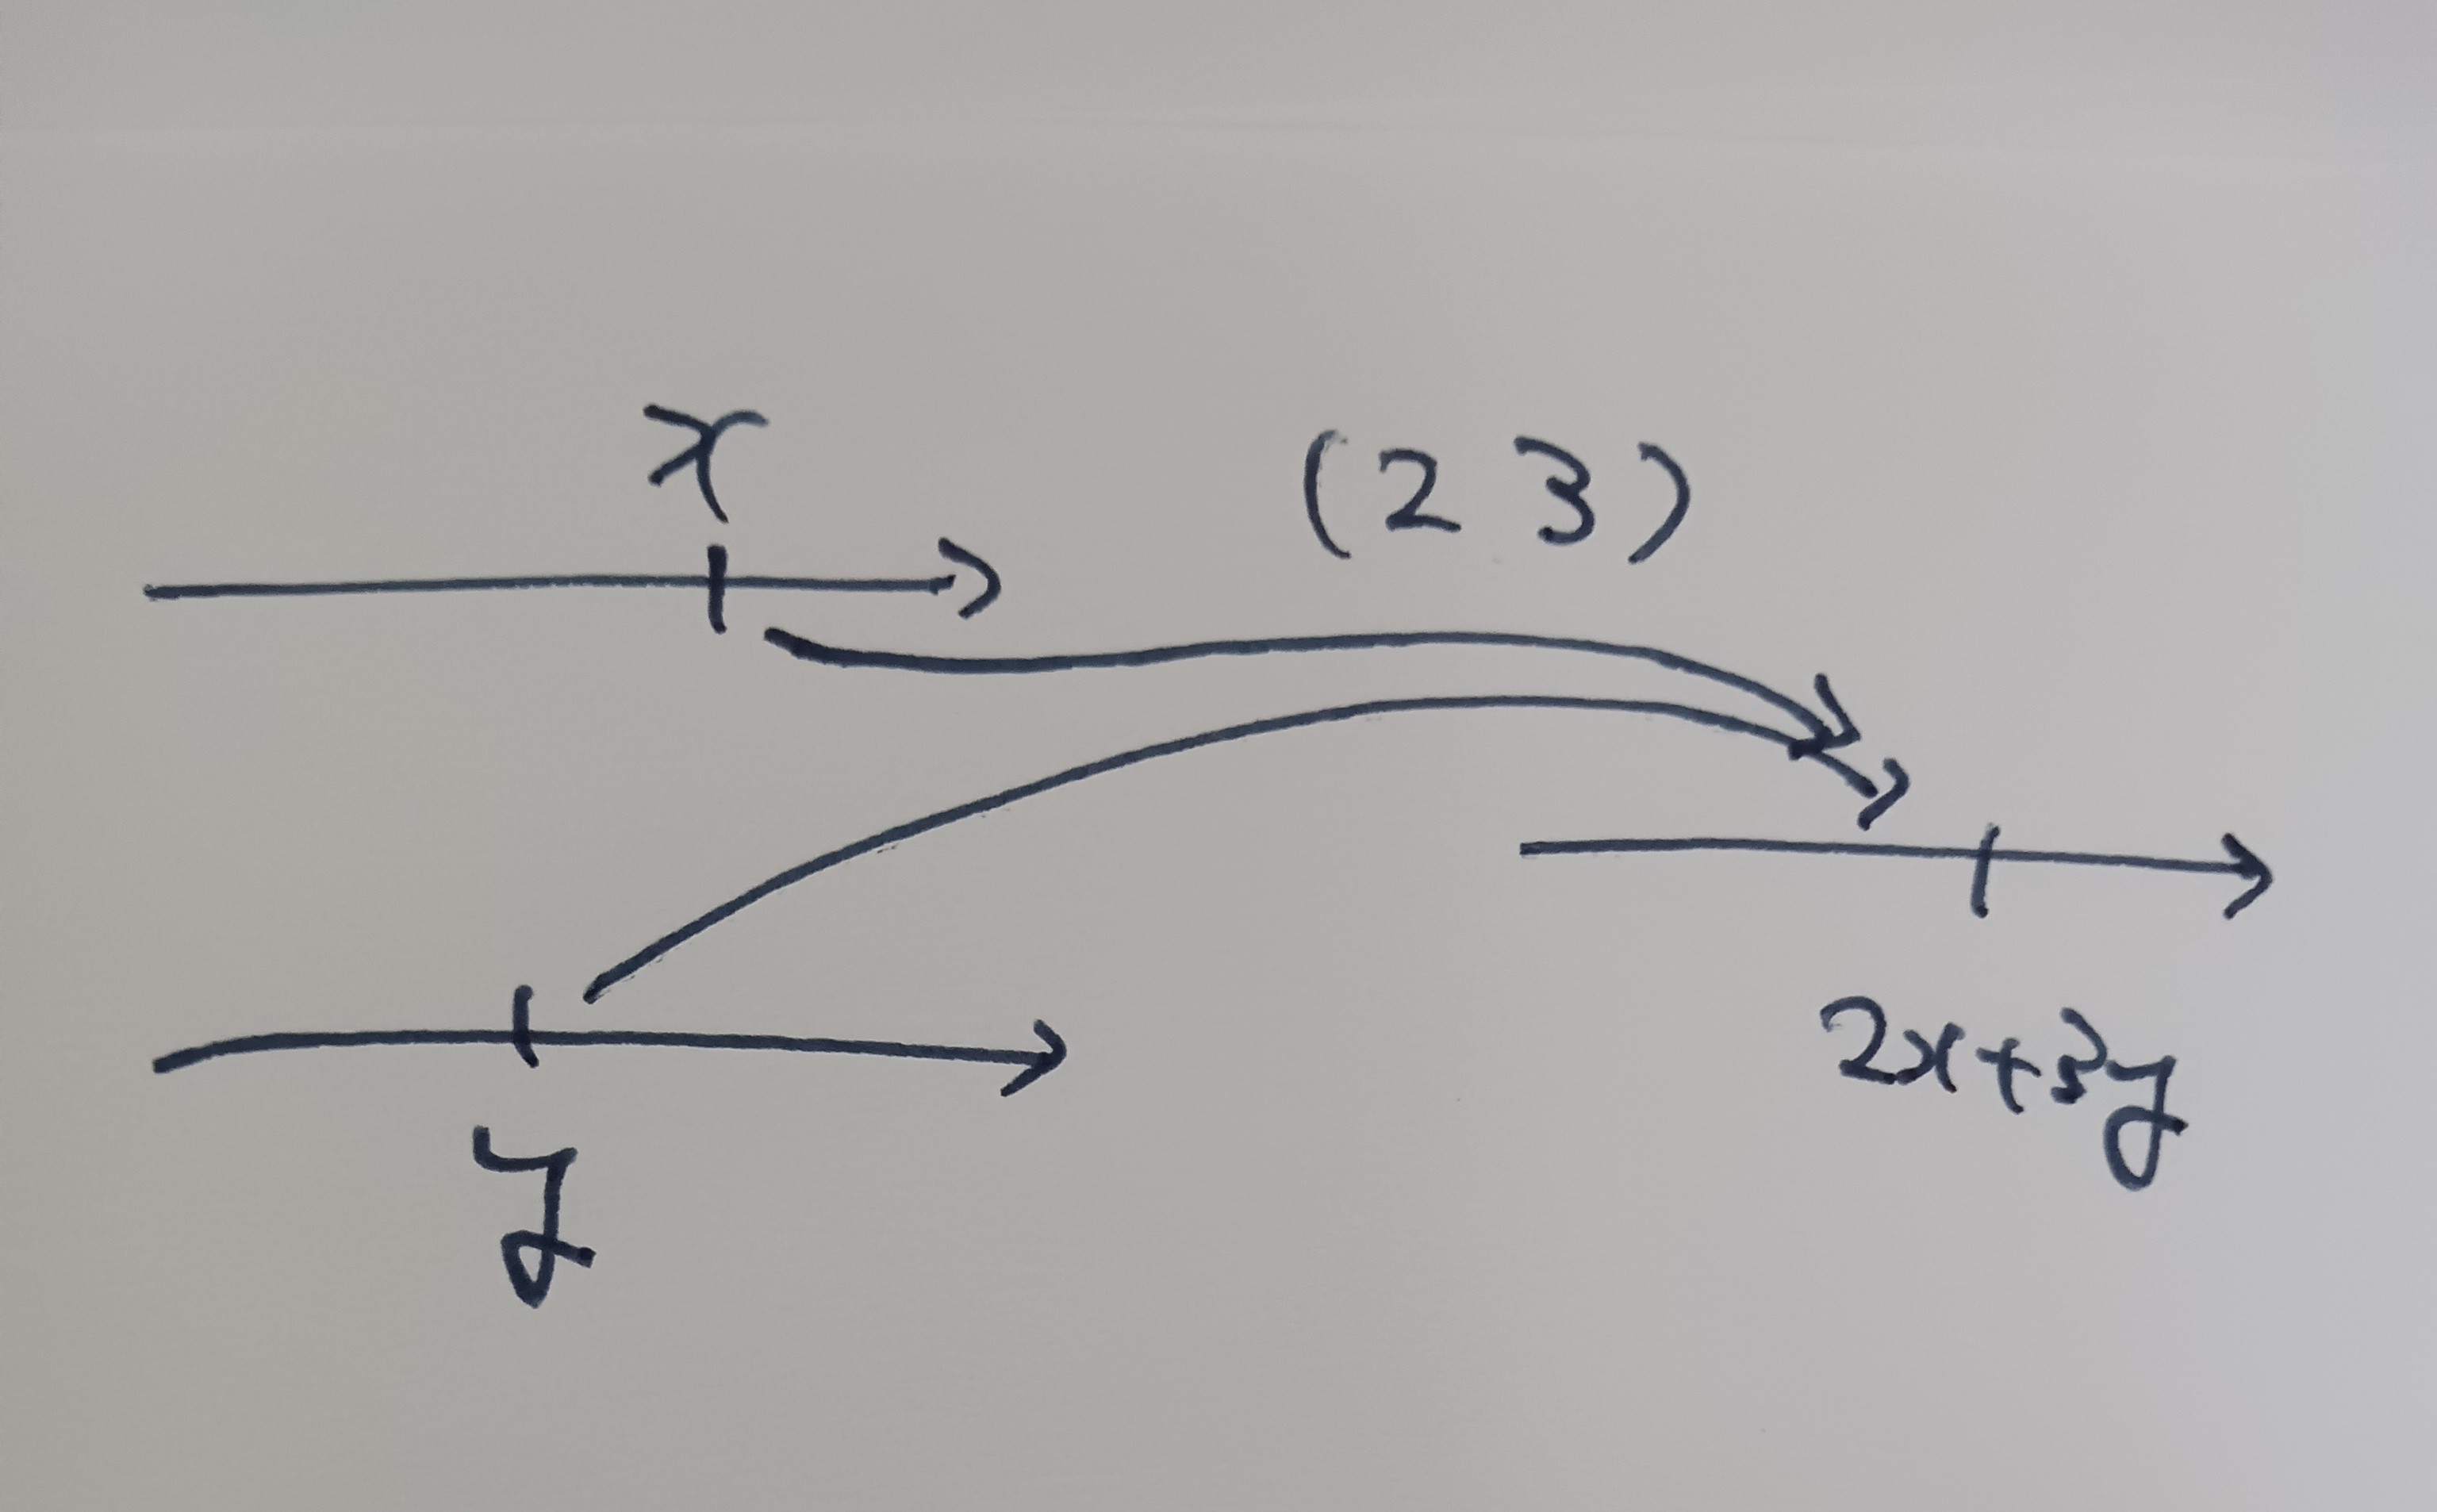 x
(2 3)
y
2x+3y